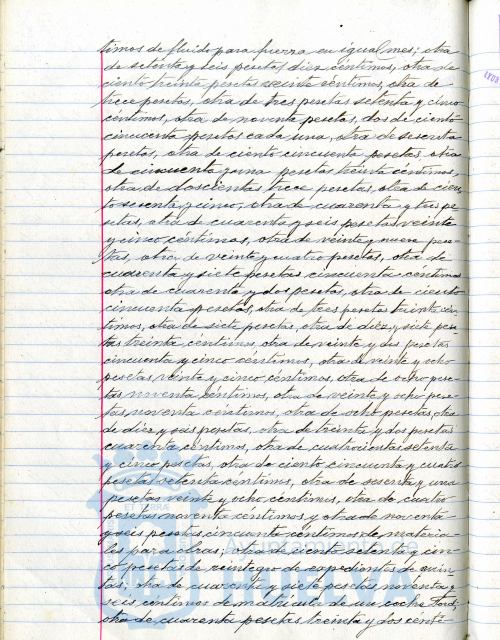 timos de fluido para fuerza en igual mes; otra
de setenta y seis pesetas diez céntimos, otra de
ciento treinta pesetas veinte céntimos, otra de
trece pesetas, otra de tres pesetas setenta y cinco
céntimos, otra de noventa pesetas, dos de ciento
cincuenta pesetas cada una, otra de sesenta
pesetas, otra de ciento cincuenta pesetas otra
de cincuenta y una pesetas treinta céntimos,
otra de doscientas trece pesetas, otra de cien
to sesenta y cinco, otra de cuarenta y tres pe
setas, otra de cuarenta y seis pesetas veinte
y cinco céntimos, otra de veinte y nueve pese-
tas, otra de veinte y cuatro pesetas, otra de
cuarenta y siete pesetas cincuenta céntimos
otra de cuarenta y dos pesetas, otra de ciento
cincuenta pesetas, otra de tres pesetas treinta cén-
timos, otra de siete pesetas, otra de diez y siete pese
tas treinta céntimos, otra de veinte y dos pesetas
cincuenta y cinco céntimos, otra de veinte y ocho
pesetas veinte y cinco céntimos, otra de ocho pese-
tas noventa céntimos, otra de veinte y ocho pese-
tas noventa céntimos, otra de ocho pesetas, otra
de diez y seis pesetas, otra de treinta y dos pesetas
cuarenta céntimos, otra de cuatrocientas setenta
y cinco pesetas, otra de ciento cincuenta y cuatro
pesetas setenta céntimos, otra de sesenta y una
pesetas veinte y ocho céntimos, otra de cuatro
pesetas noventa céntimos, otra de noventa
y seis pesetas cincuenta céntimos de materia-
les para obras; otra de ciento setenta y cin-
co pesetas de reintegro de expedientes de quin-
tas; otra de cuarenta y siete pesetas noventa y
seis céntimos de matrícula de un coche Ford;
otra de cuarenta pesetas treinta y dos cénti-